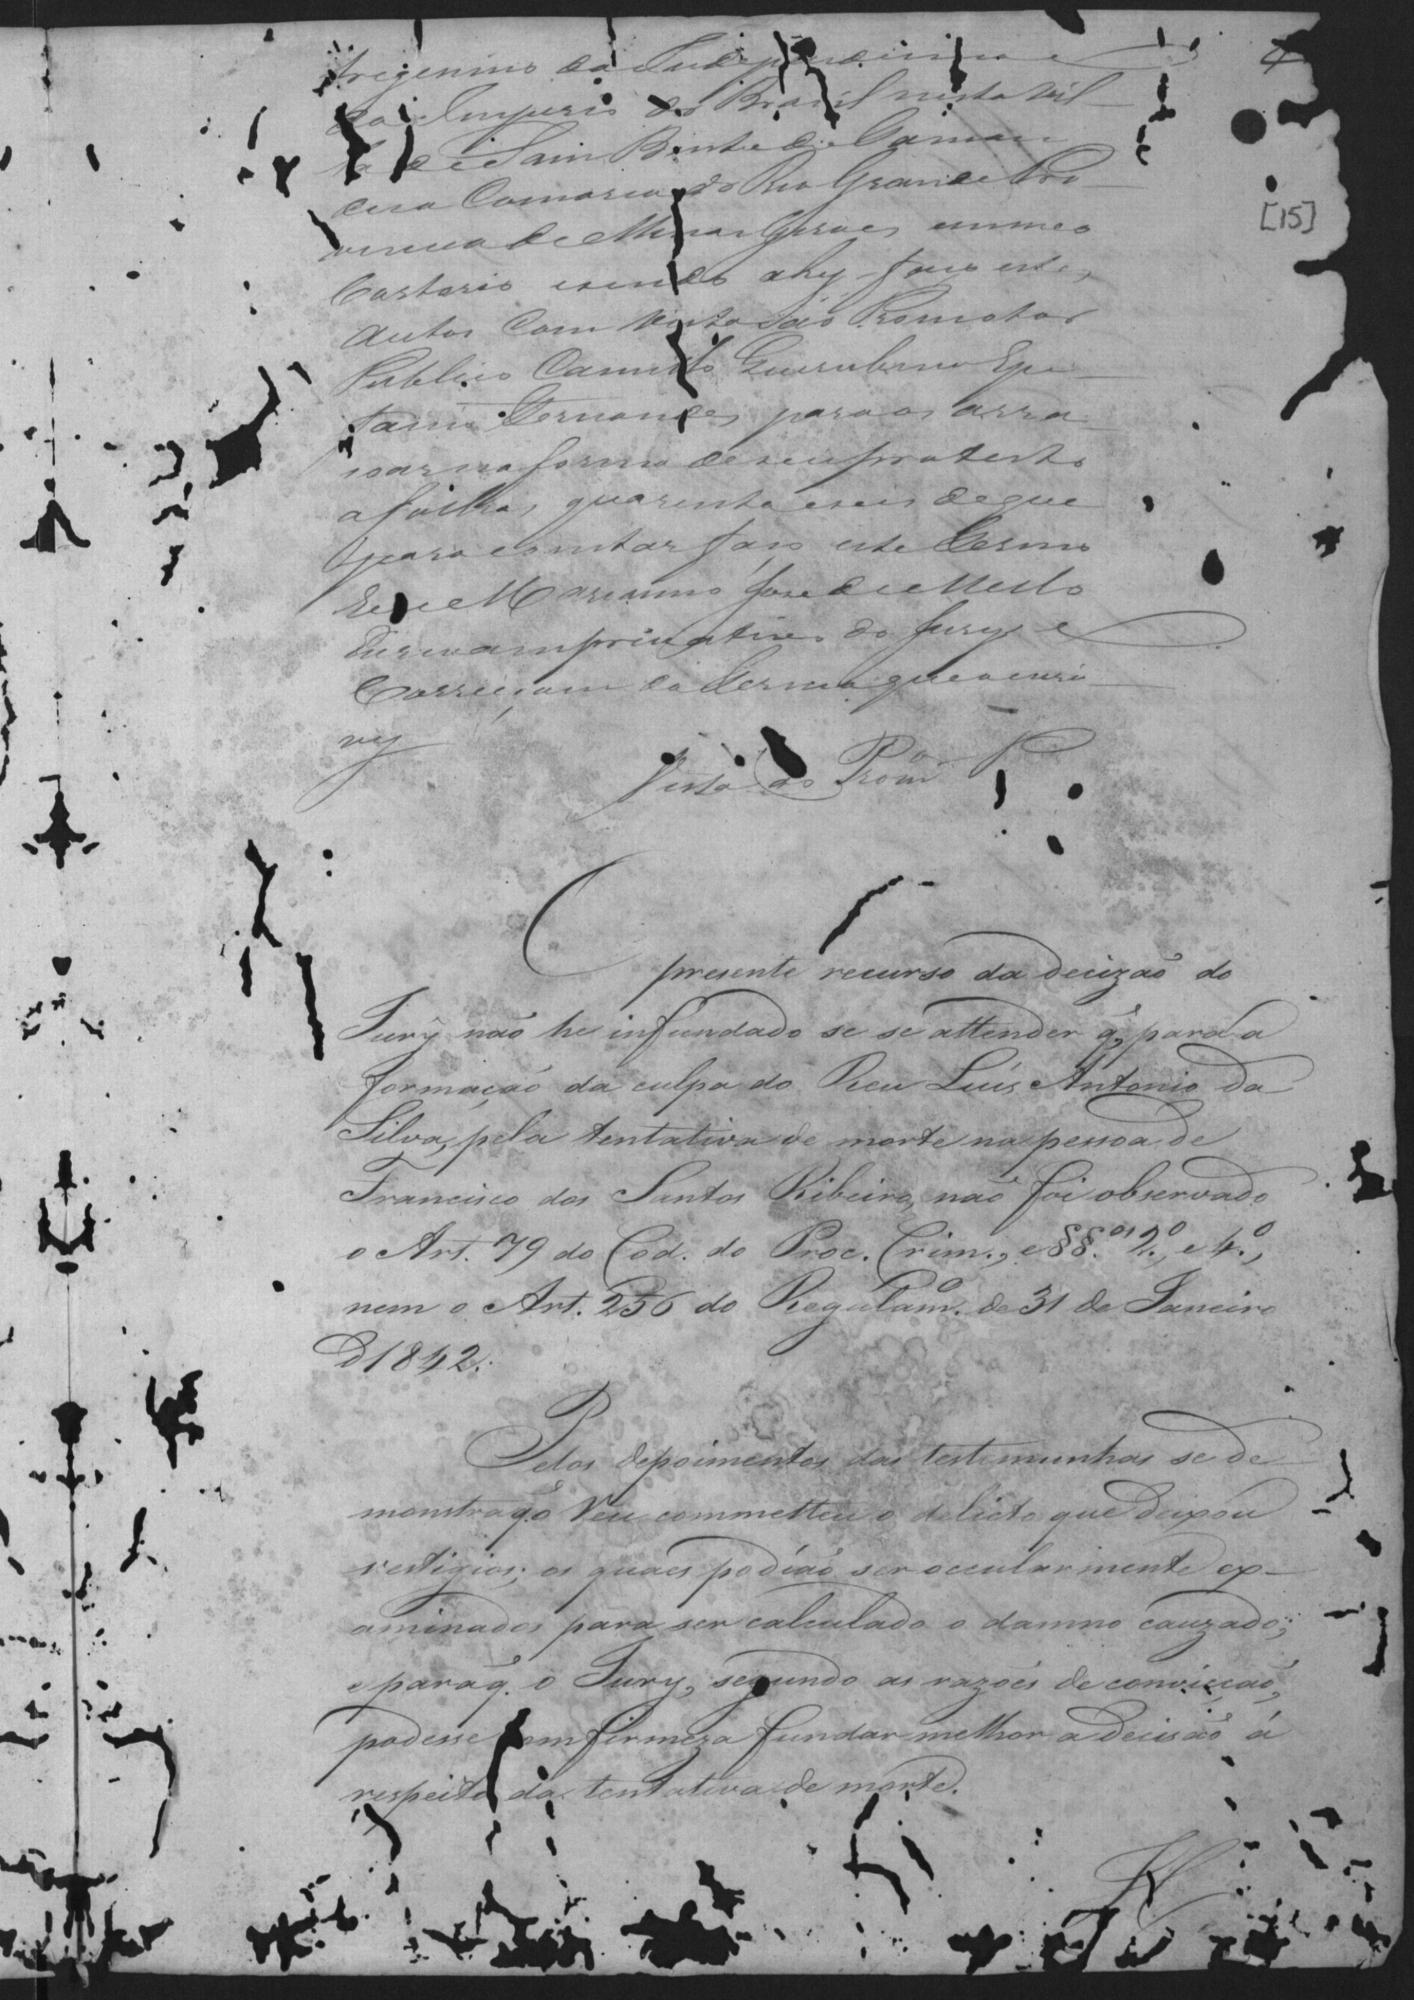 trigesimo da Independencia e
do Imperio do Brasil nesta Vil-
la de Sam Bento de Taman
dua Comarca do Rio Grande Pro
vincia de Minas Geraes em meo
Cartorio e sendo ahy faço estes
Autos Com Vista ao Promotor
Publico Camillo
Fernandes para os arra-
soar na forma de seu protesto
a folhas quarenta e seis de que
para constar faço este Termo
Eu Marianno José de Mello
Escrivam privativo do Jury e
Correiçam do Termo que o escri-
vy
Vista ao Prom.or P.
[15]
O presente recurso da decizaõ do
Jury naõ he infundado se se attender q̃, para a
formaçaõ da culpa do Reu Luis Antonio da
Silva, pela tentativa de morte na pessoa de
Francisco dos Santos Ribeiro, naõ foi observado
o Art. 79 do Cod. do Proc. Crim., e §§.os 2.º, e 4.º,
nem o Art. 256 do Regulam.o de 31 de Janeiro
d 1842.
Pelos depoimentos das testimunhas se de
monstra q̃ o Reu commetteu o delicto que deixou
vestigios; os quaes podiaõ ser occularmente ex-
aminados para ser calculado o damno cauzado;
e para q̃ o Jury, segundo as razões de convicçaõ,
podesse com firmeza fundar melhor a decisaõ á
respeito da tentativa de morte.